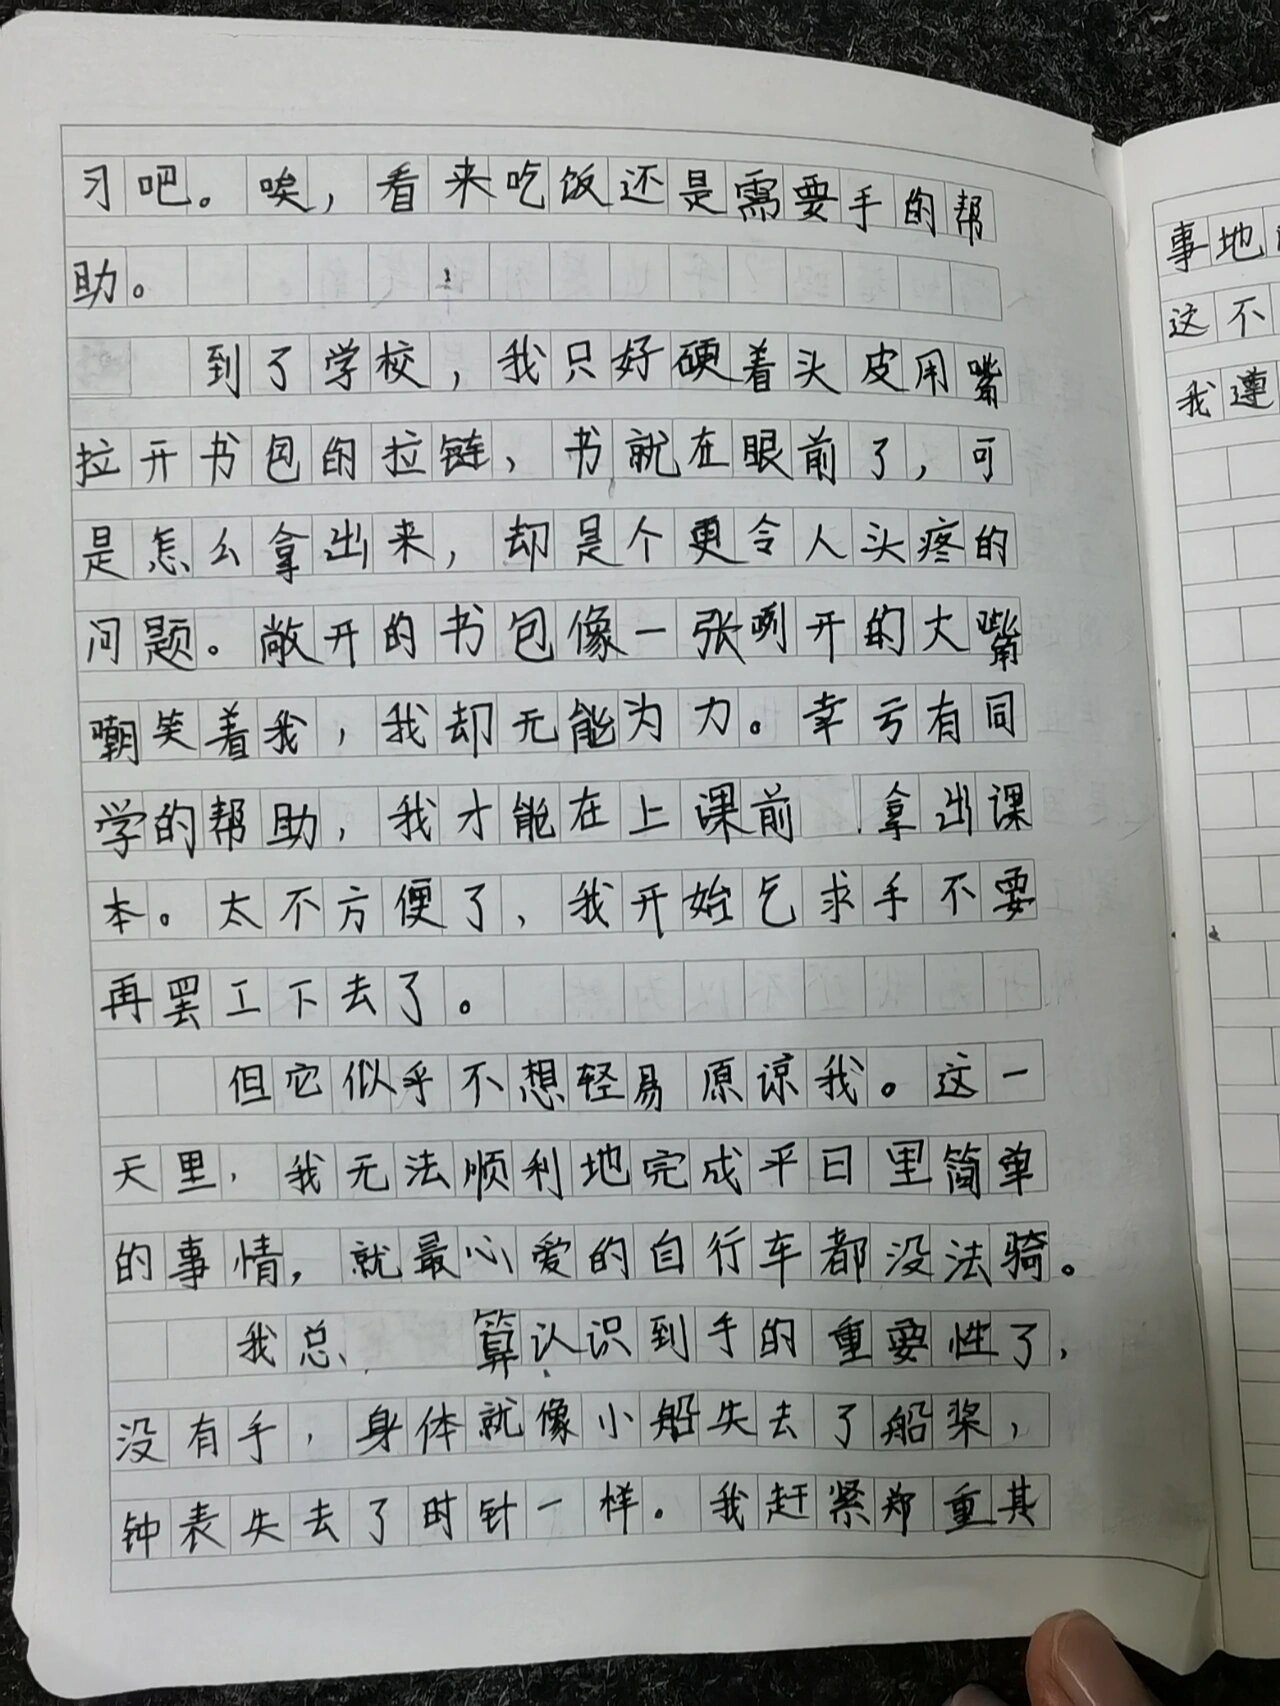 习吧。唉，看来吃饭还是需要手的帮
助。
到了学校，我只好硬着头皮用嘴
拉开书包的拉链，书就在眼前了，可
是怎么拿出来，却是个更令人头疼的
问题。敞开的书包像一张咧开的大嘴
嘲笑着我，我却无能为力。幸亏有同
学的帮助，我才能在上课前拿出课
本。太不方便了，我开始乞求手不要
再罢工下去了。
但它似乎不想轻易原谅我。这一
天里，我无法顺利地完成平日里简单
的事情，就最心爱的自行车都没法骑。
我总算认识到手的重要性了，
没有手，身体就像小船失去了船桨，
钟表失去了时针一样。我赶紧郑重其
事地
这不
我遵